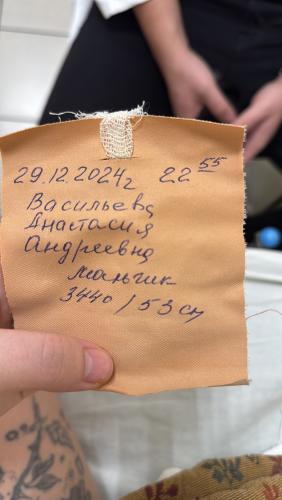 29.12.2024г 22 55
Васильева
Анастасия
Андреевна
мальчик
3440 / 53 см